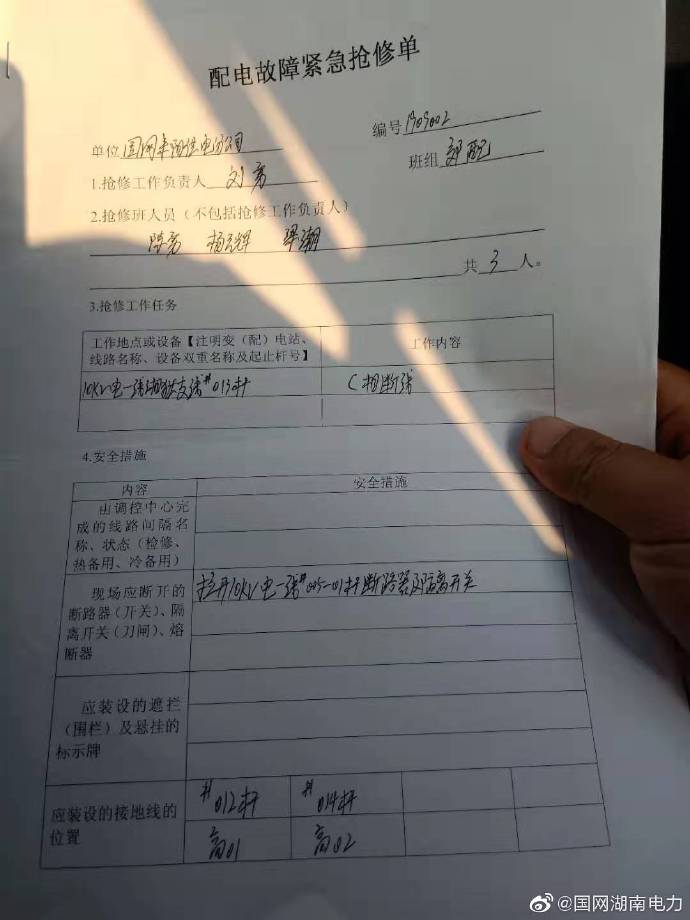 配电故障紧急抢修单
编号 1909002
单位 国网耒阳供电公司
班组
1.抢修工作负责人 刘亮
2.抢修班人员（不包括抢修工作负责人）
陈亮 杨云辉 梁潮
共 3 人。
3.抢修工作任务
工作地点或设备【注明变（配）电站、 工作内容
线路名称、设备双重名称及起止杆号】
10KV电一线 支线#013杆 C相断线
4.安全措施
内容 安全措施
由调控中心完
成的线路间隔名
称、状态（检修、
热备用、冷备用）
现场应断开的 拉开10KV电一线#005-01杆断路器及隔离开关
断路器（开关）、隔
离开关（刀闸）、熔
断器
应装设的遮拦
（围栏）及悬挂的
标示牌
应装设的接地线的 #012杆 #014杆
位置 高01 高02
@国网湖南电力